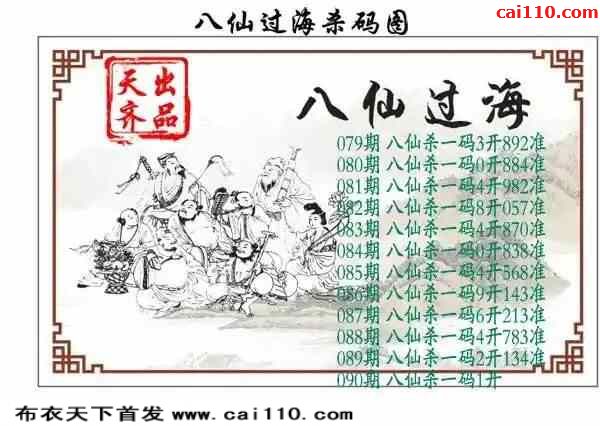 cai110.com
八仙过海杀码图
天齐出品
八仙过海
079期 八仙杀一码3开892准
080期 八仙杀一码0开884准
081期 八仙杀一码4开982准
082期 八仙杀一码8开057准
083期 八仙杀一码4开870准
084期 八仙杀一码0开838准
085期 八仙杀一码4开568准
086期 八仙杀一码9开143准
087期 八仙杀一码6开213准
088期 八仙杀一码4开783准
089期 八仙杀一码2开134准
090期 八仙杀一码1开
布衣天下首发 www.cai110.com